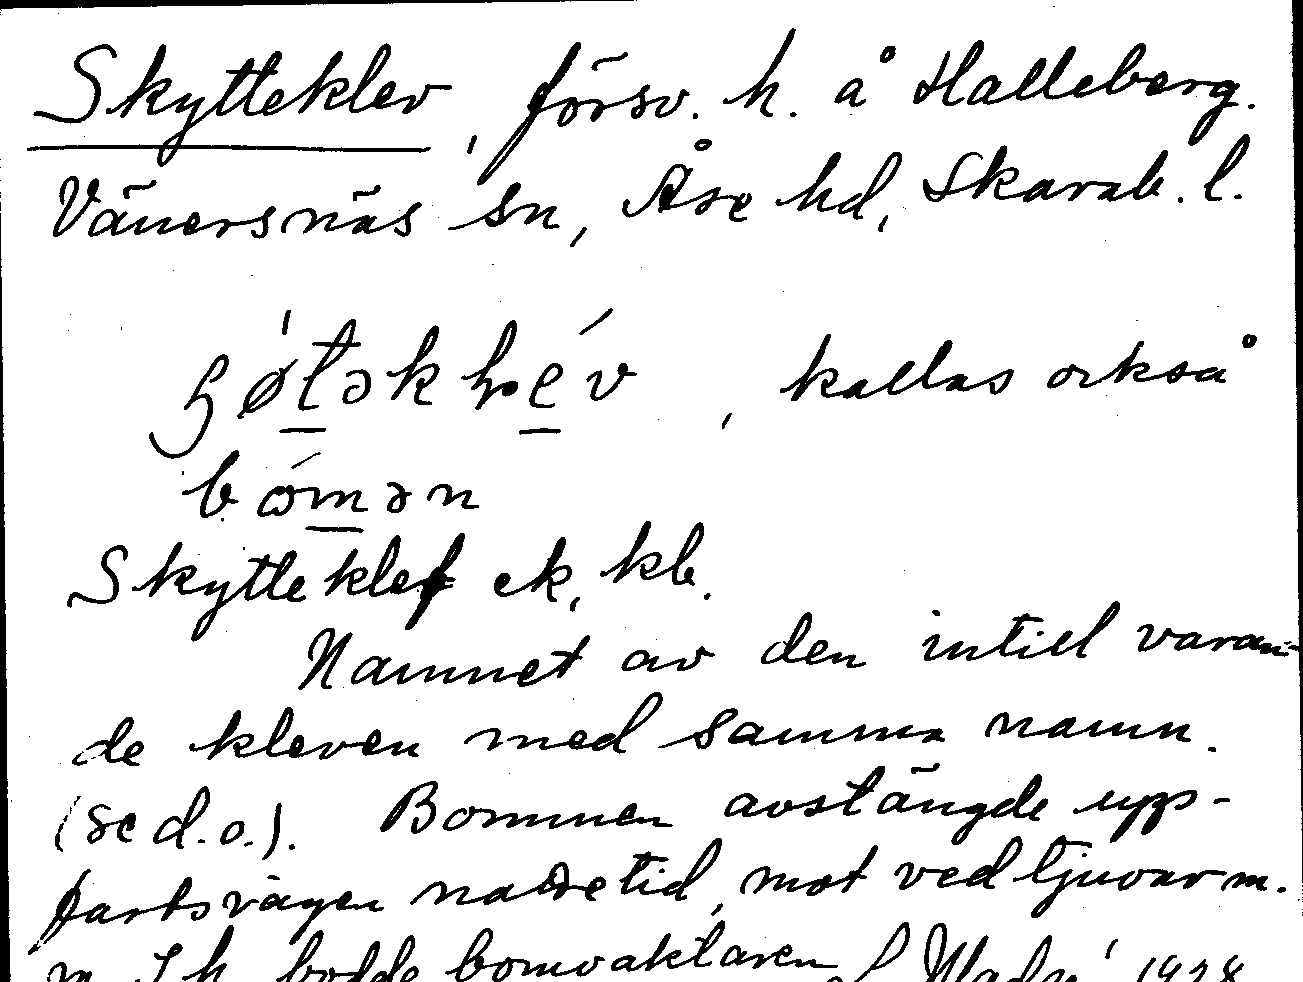 Skytteklev, försv. h. å Halleberg.
Vänersnäs sn, Åse hd, Skarab. l.
kallas också
bómən
Skytteklef ek, kb.
Namnet av den intill varan-
de kleven med samma namn.
(se d.o.). Bommen avstängde upp-
fartsvägen nattetid, mot vedtjuvar m.
m. I h. bodde bomvaktaren